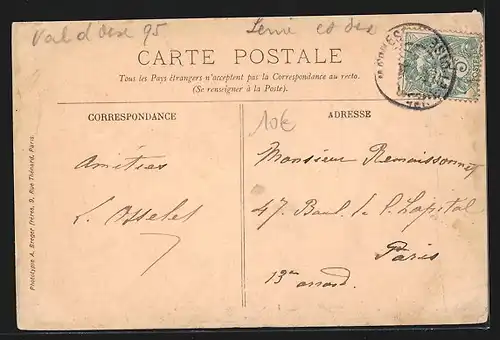 Val d'oise 95
Serie
CARTE POSTALE
Tous les Pays étrangers n'acceptent pas la Correspondance au recto.
(Se renseigner à la Poste).
CORRESPONDANCE
ADRESSE
10€
Amitiés
L. Osselet
Monsieur Remoissonnet
47. Boul. de l'Hapital
Paris
13me arrond.
Phototypie A. Breger Frères, 9, Rue Thénard, Paris.